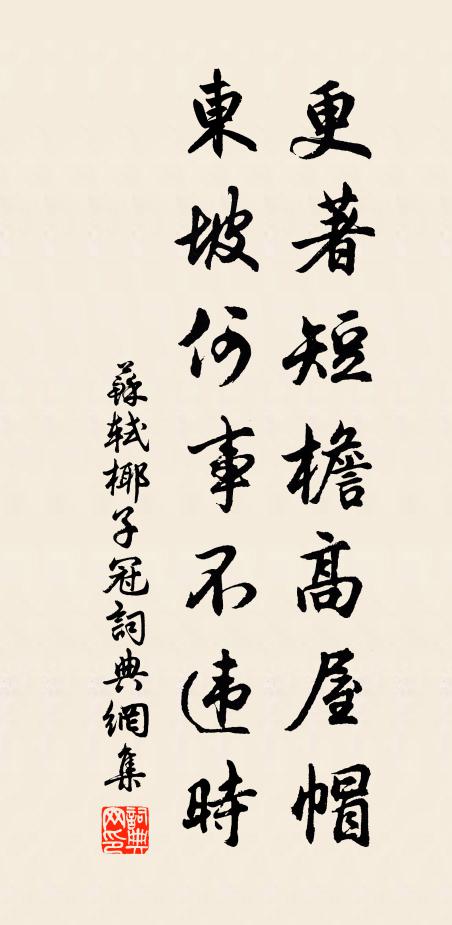 更著短檐高屋帽
東坡何事不违時
蘇軾椰子冠詞典網集
詞典网印